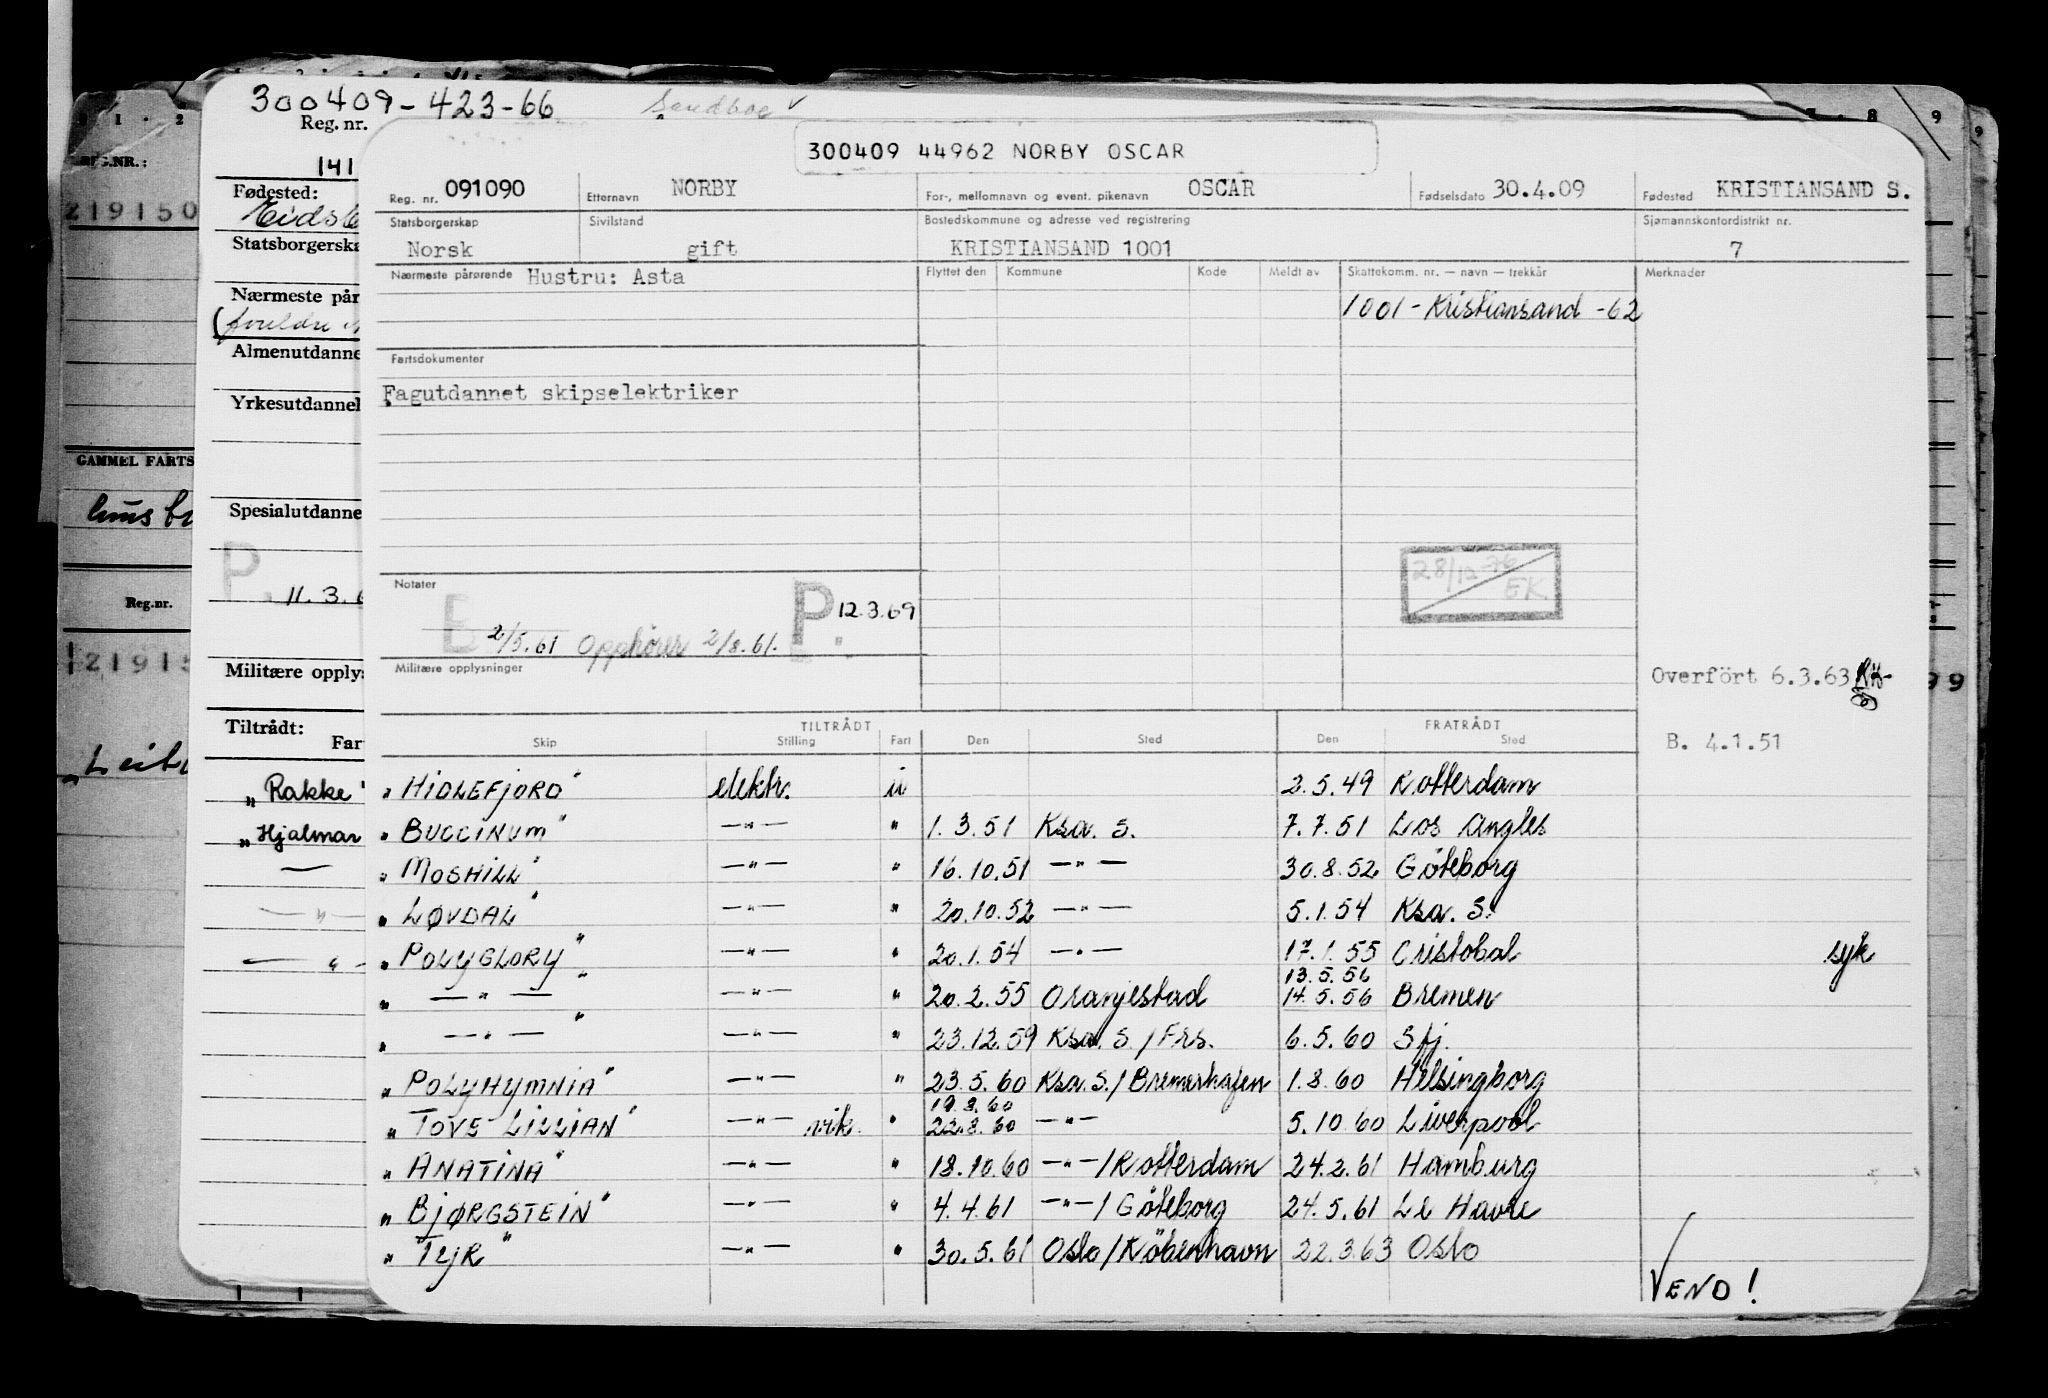 300409-423-66
Reg. nr.
141
REG.NR.:
Fødested:
219150
Statsborgerska
Nærmeste pår
Almenutdanne
Yrkesutdannel
GAMMEL FARTS
Spesialutdanne
P.
11.3.6
Reg.nr.
Militære opplys
Tiltrådt:
Far
„Rakke"
„Hjalmar
300409 44962 NORBY OSCAR
Reg. nr. 091090 Etternavn NORBY For-, mellomnavn og event. pikenavn OSCAR Fødselsdato 30.4.09 Fødested KRISTIANSAND S.
Statsborgerskap Sivilstand Bostedskommune og adresse ved registrering Sjømannskontordistrikt nr.
Norsk gift KRISTIANSAND 1001 7
Nærmeste pårørende Hustru: Asta Flyttet den Kommune Kode Meldt av Skattekomm. nr. — navn — trekkår Merknader
1001 - Kristiansand -62
Fartsdokumenter
Fagutdannet skipselektriker
28/12-76
EK
Notater
E P. 12.3.69
2/5.61 Opphører 2/8.61.
Militære opplysninger
Overfört 6.3.63
TILTRÅDT FRATRÅDT
Skip Stilling Fart Den Sted Den Sted
B. 4.1.51
„HIDLEFJORD" elektr. u 2.5.49 Rotterdam
„BUCCINUM" —"— " 1.3.51 Ksa. S. 7.7.51 Los Angles
„MOSHILL" —"— " 16.10.51 —"— 30.8.52 Göteborg
„LØVDAL" —"— " 20.10.52 —"— 5.1.54 Ksa. S.
„POLYGLORY" —"— " 20.1.54 —"— 17.1.55 Cristobal syk
13.5.56
„ —"— " —"— " 20.2.55 Oranjestad 14.5.56 Bremen
„ —"— " —"— " 23.12.59 Ksa. S./Frs. 6.5.60 Sfj.
„POLYHYMNIA" —"— " 23.5.60 Ksa.S./Bremerhafen 1.8.60 Helsingborg
19.8.60
„TOVE LILLIAN" —"— vik. " 22.8.60 —"— 5.10.60 Liverpool
„ANATINA" —"— " 18.10.60 —"—/Rotterdam 24.2.61 Hamburg
„BJØRGSTEIN" —"— " 4.4.61 —"—/Göteborg 24.5.61 Le Havre
„TYR" —"— " 30.5.61 Oslo/Köbenhavn 22.3.63 Oslo
VEND!